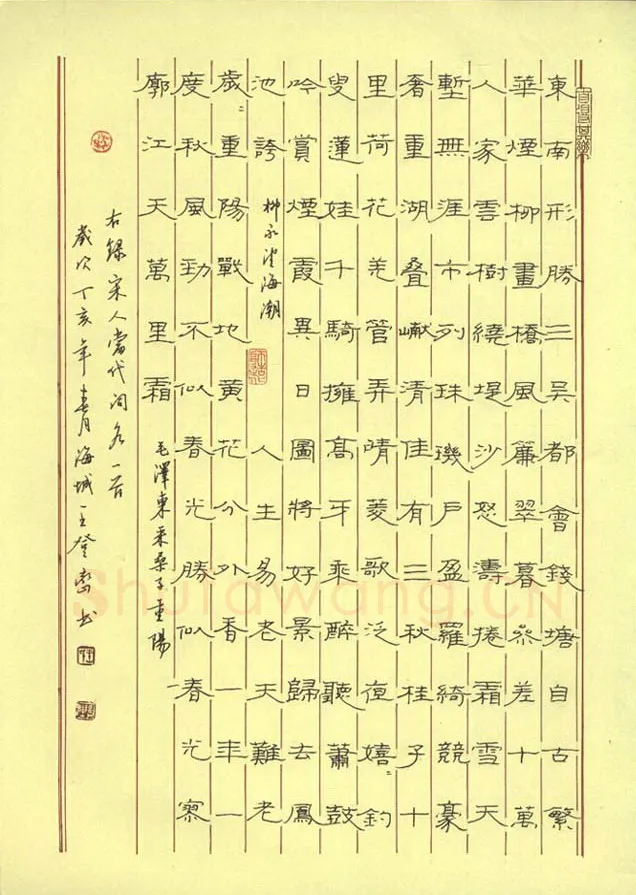 東南形勝三吳都會錢塘自古繁
華煙柳畫橋風簾翠暮參差十萬
人家雲樹繞堤沙怒濤捲霜雪天
塹無涯市列珠璣戶盈羅綺競豪
奢重湖疊巘清佳有三秋桂子十
里荷花羌管弄晴菱歌泛夜嬉〻釣
叟蓮娃千騎擁高牙乘醉聽蕭鼓
吟賞煙霞異日圖將好景歸去鳳
池誇
柳永望海潮
人生易老天難老
歲〻重陽戰地黃花分外香一年一
度秋風勁不似春光勝似春光寥
廓江天萬里霜
毛澤東采桑子重陽
右錄宋人當代詞各一首
歲次丁亥年春月海城王登巒书
Shufawang.CN